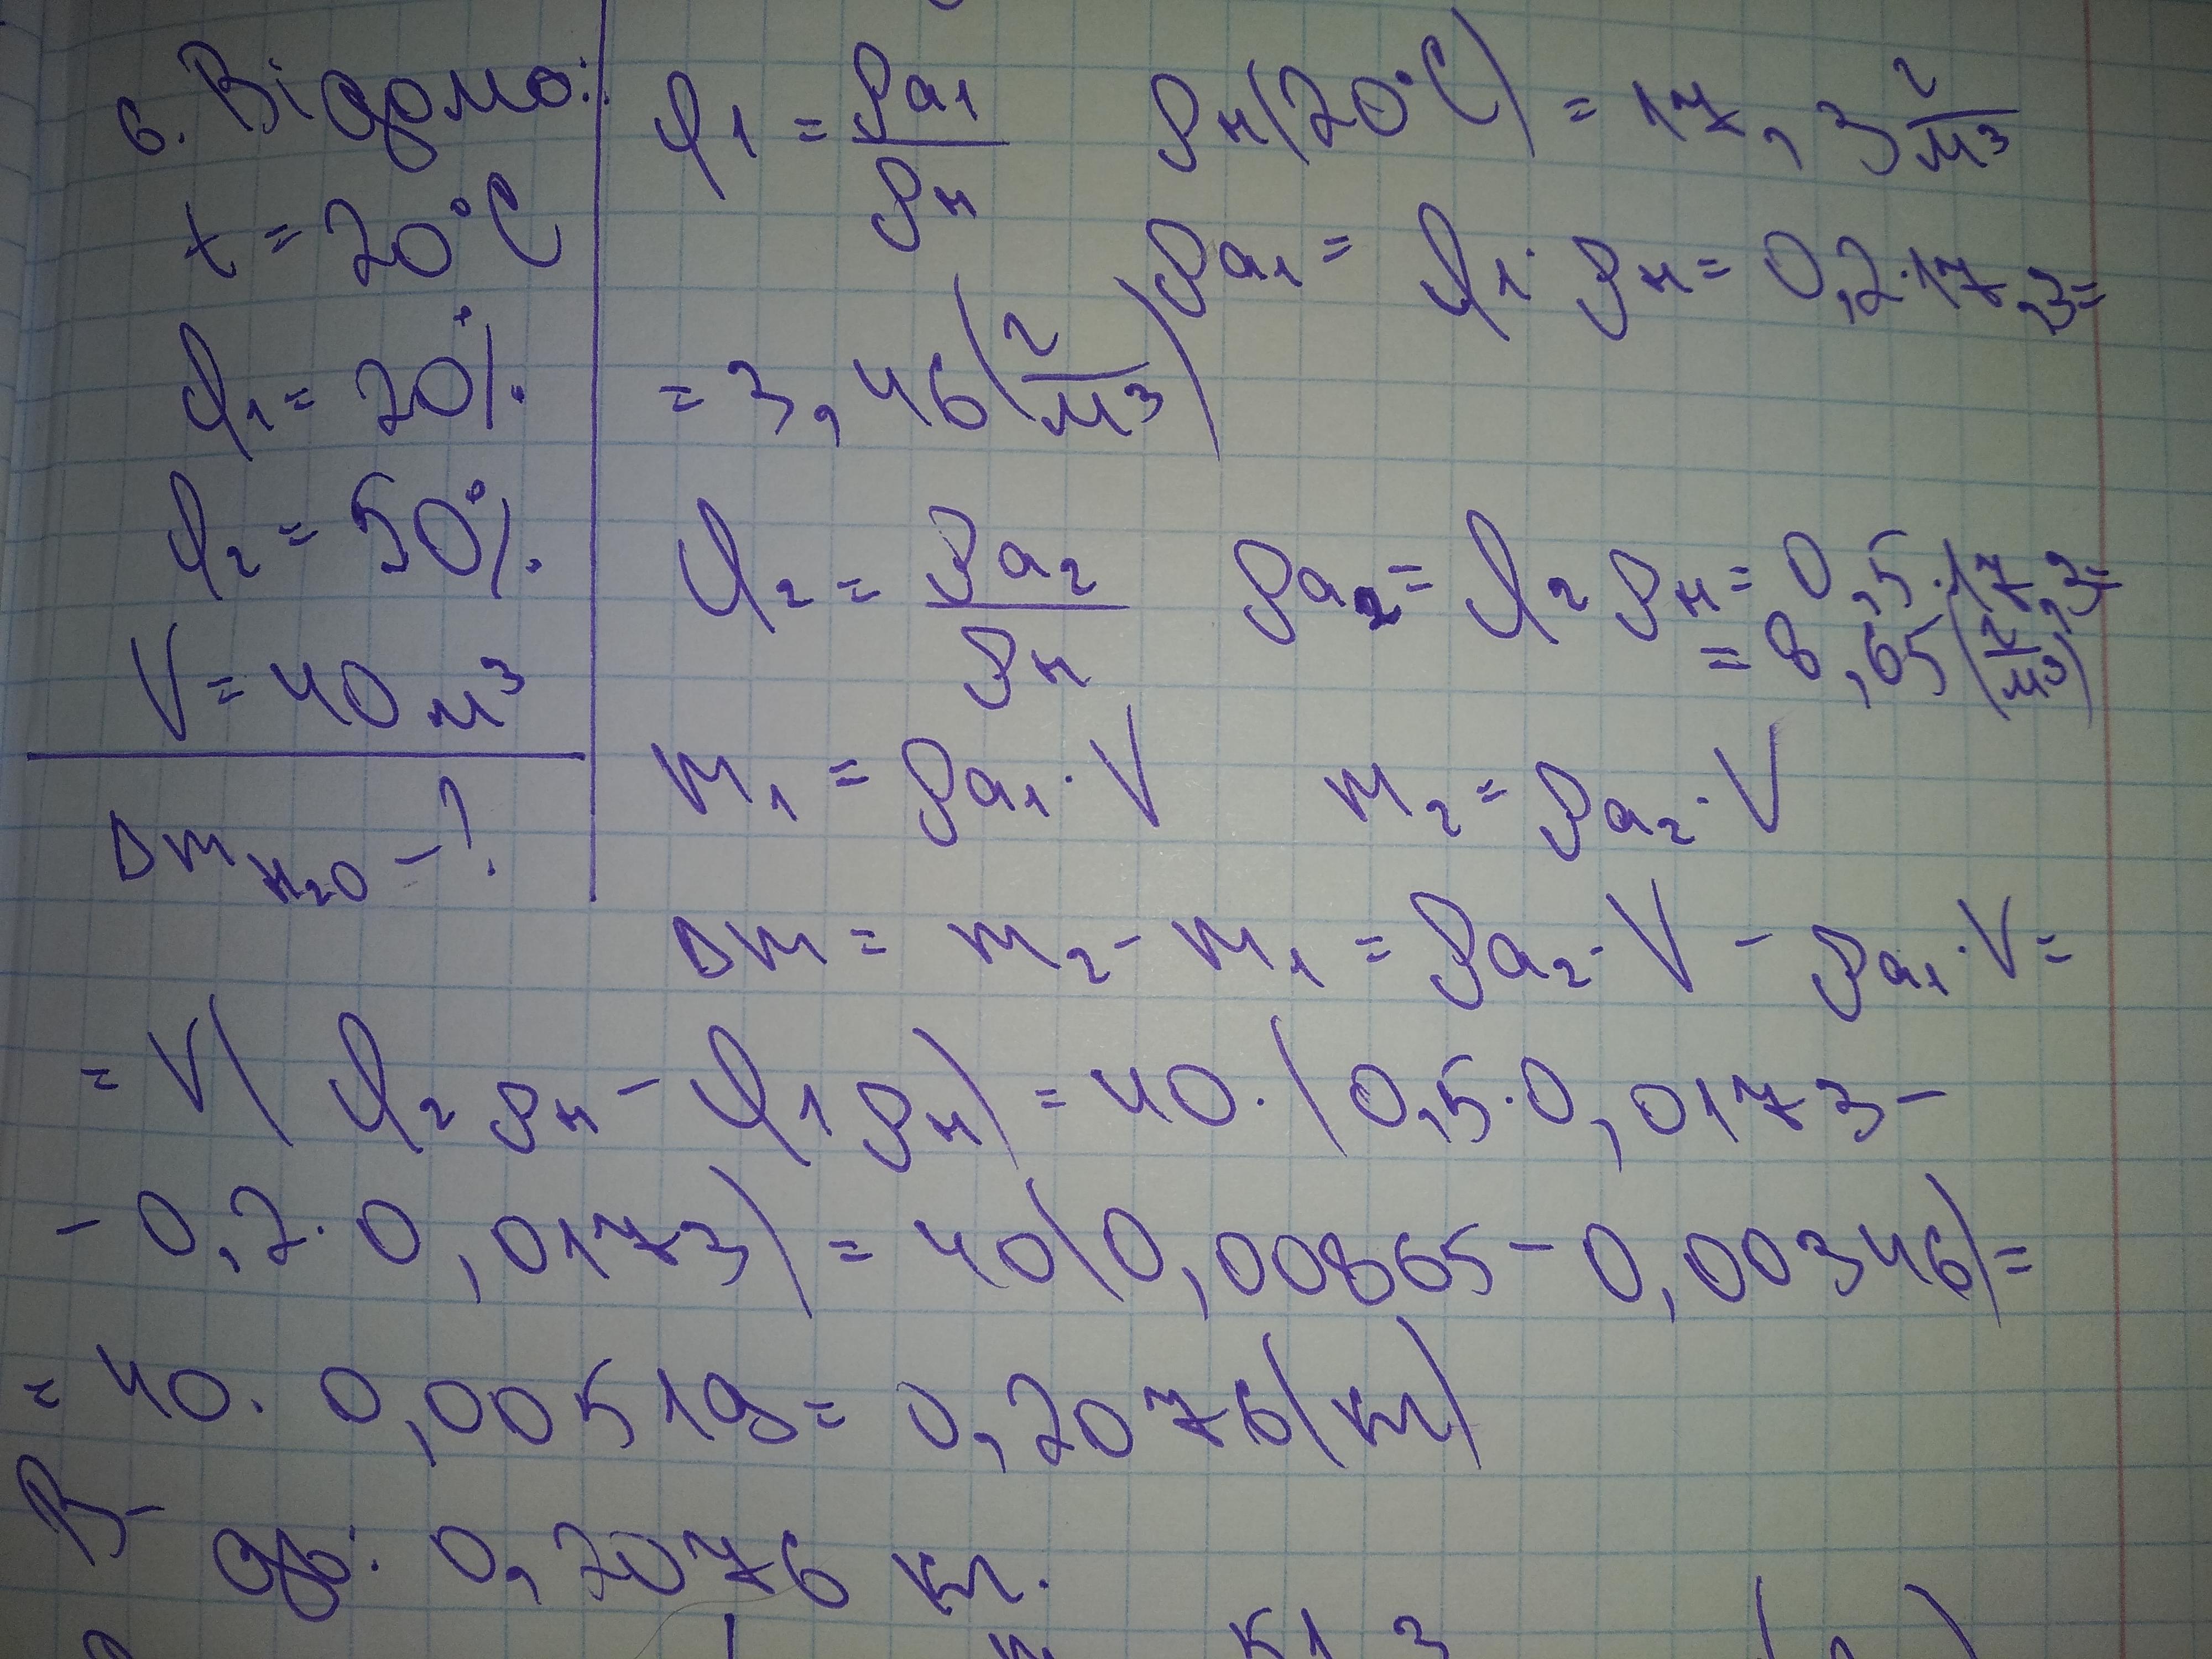 6. Відомо:
t = 20°C
φ₁ = 20%
φ₂ = 50%
V = 40 м³
Δm H₂O - ?
φ₁ = ρa₁/ρн ρн(20°C) = 17,3 г/м³
ρa₁ = φ₁·ρн = 0,2·17,3=
= 3,46 (г/м³)
φ₂ = ρa₂/ρн ρa₂ = φ₂ ρн = 0,5·17,3=
= 8,65 (г/м³)
m₁ = ρa₁·V m₂ = ρa₂·V
Δm = m₂ - m₁ = ρa₂·V - ρa₁·V =
= V( φ₂ ρн - φ₁ ρн) = 40·(0,5·0,0173 -
- 0,2·0,0173) = 40(0,00865 - 0,00346) =
= 40·0,00519 = 0,2076 (кг)
В-дь: 0,2076 кг.